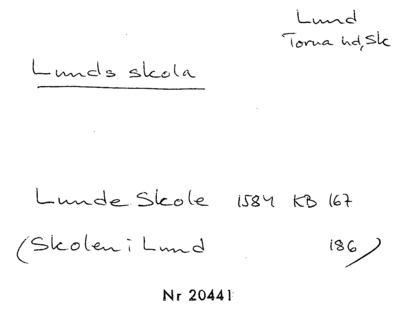 Lund
Torna hd, Sk
Lunds skola
Lunde Skole 1584 KB 167
(Skolen i Lund 186)
Nr 20441